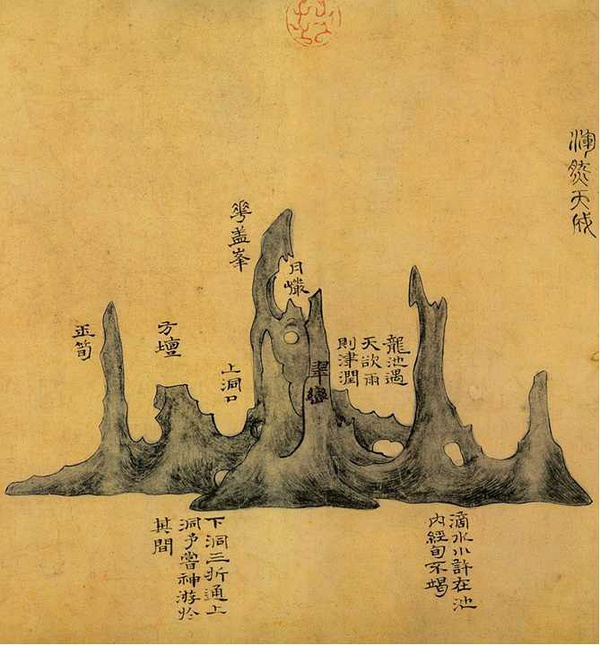 渾然天成
龍池遇
天欲雨
則津潤
月巖
翠巒
華盖峯
上洞口
方壇
玉筍
滴水小許在池
內經旬不竭
下洞三折通上
洞予嘗神游於
其間